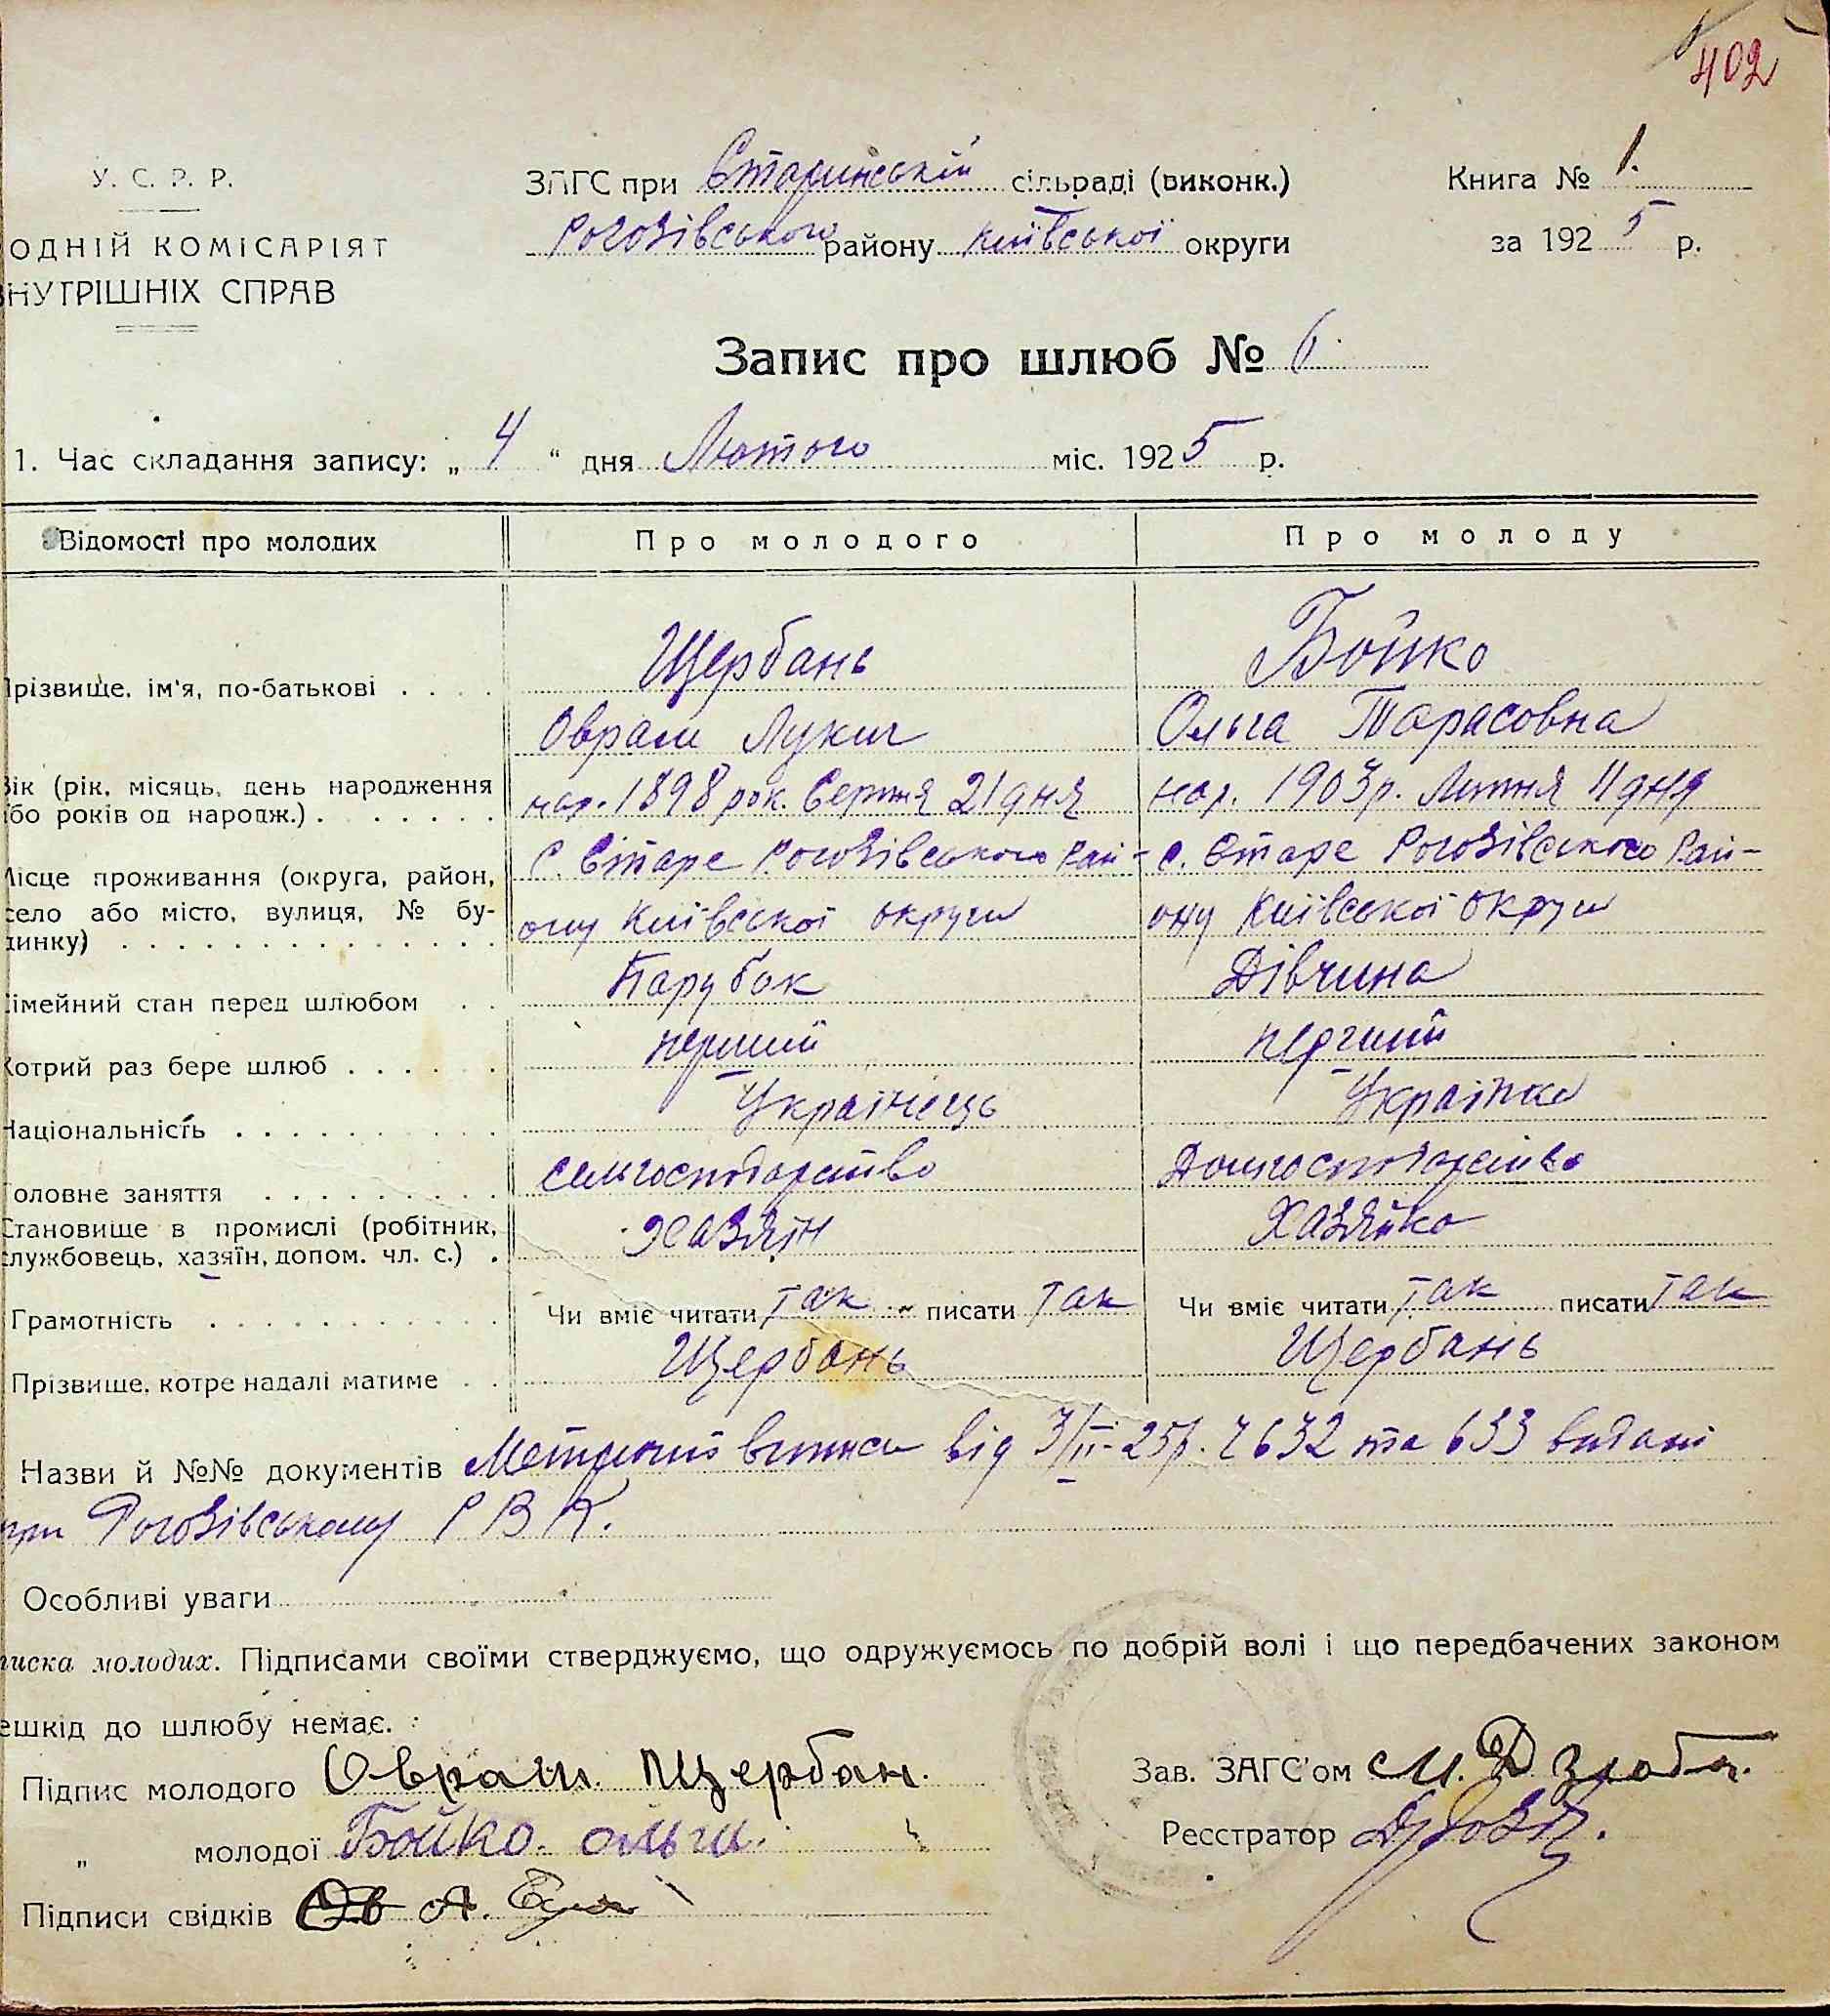 402
У. С. Р. Р.
ЗАГС при Старинській сільраді (виконк.)
Книга № 1.
Рогозівського району Київської округи
за 1925 р.
ОДНІЙ КОМІСАРІЯТ
НУТРІШНІХ СПРАВ
Запис про шлюб № 6.
1. Час складання запису: „ 4 “ дня Лютого міс. 1925 р.
Відомості про молодих Про молодого Про молоду
Щербань Бойко
різвище, ім'я, по-батькові . . . .
Оврам Лукич Ольга Тарасовна
ік (рік, місяць, день народження
бо років од народж.) . . . . . .
нар. 1898 рок. Серпня 21 дня нар. 1903 р. Липня 11 дня
С. Старе Рогозівського Рай- с. Старе Рогозівського Рай-
ісце проживання (округа, район,
село або місто, вулиця, № бу-
динку) . . . . . . . . . . . . . .
ону Київської округи ону Київської округи
імейний стан перед шлюбом . . Парубок Дівчина
Котрий раз бере шлюб . . . . . перший перший
Національність . . . . . . . . . Українець Українка
оловне заняття . . . . . . . . . сильгосподарство Домгосподарство
Становище в промислі (робітник,
службовець, хазяїн, допом. чл. с.) . Хазяїн Хазяйка
Грамотність . . . . . . . . . . . Чи вміє читати так писати так Чи вміє читати так писати так
Прізвище, котре надалі матиме . . Щербань Щербань
Назви й №№ документів Метричні виписи від 3/II-25р. № 632 та 633 видані
при Рогозівському Р В К.
Особливі уваги
писка молодих. Підписами своїми стверджуємо, що одружуємось по добрій волі і що передбачених законом
ешкід до шлюбу немає.
Підпис молодого Оврам. Щербан.
Зав. ЗАГС'ом М. Дзюба.
„ молодої Бойко. ольги.
Реєстратор
Підписи свідків А.